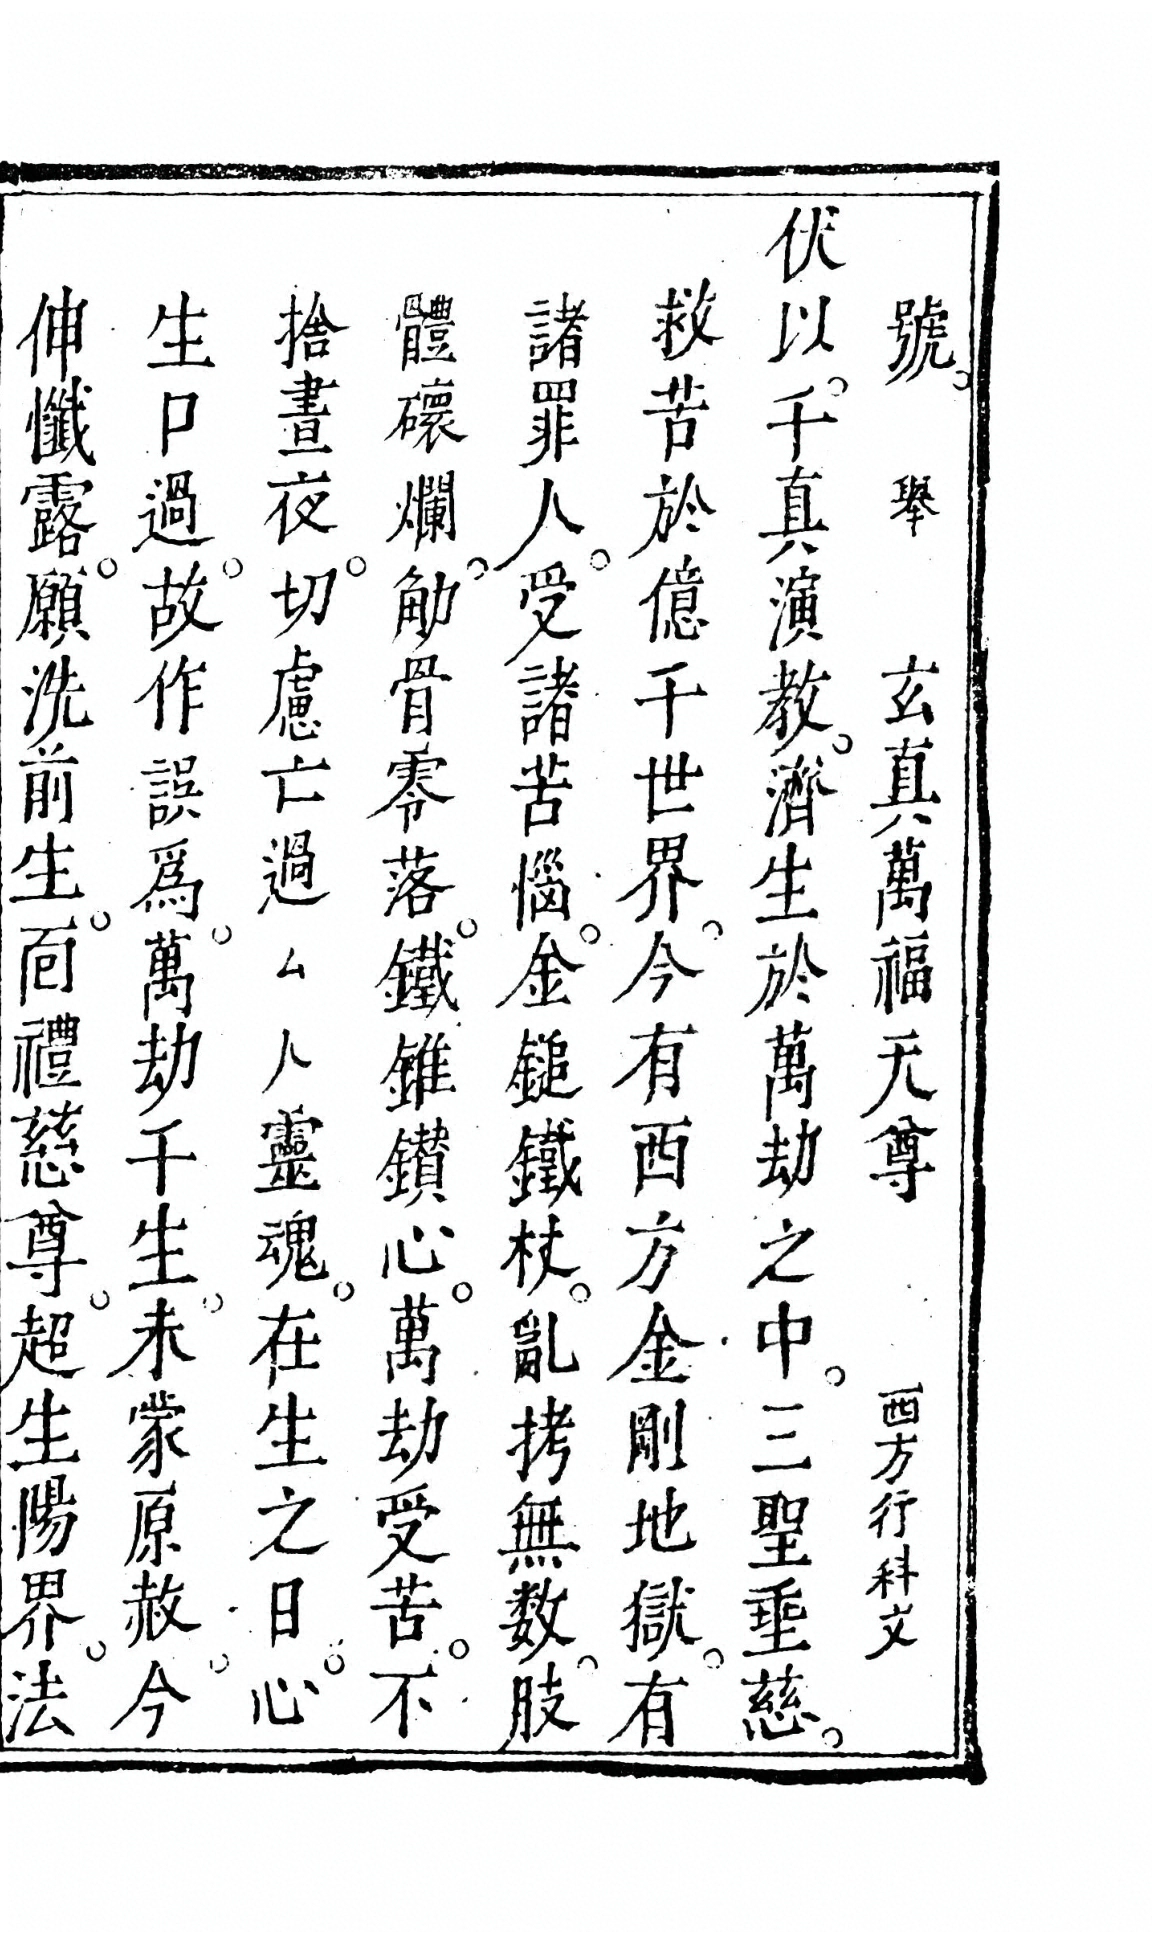 號。　舉　玄真萬福天尊　西方行科文
伏以。千真演教。濟生於萬劫之中。三聖垂慈。
救苦於億千世界。今有西方金剛地獄。有
諸罪人。受諸苦惱。金鎚鐵杖。亂拷無數。肢
體礦爛。觔骨零落。鐵錐鑽心。萬劫受苦。不
捨晝夜。切慮亡過厶人靈魂。在生之日。心
生口過。故作誤為。萬劫千生。未蒙原赦。今
伸懺露。願洗前生。囬禮慈尊。超生陽界。法